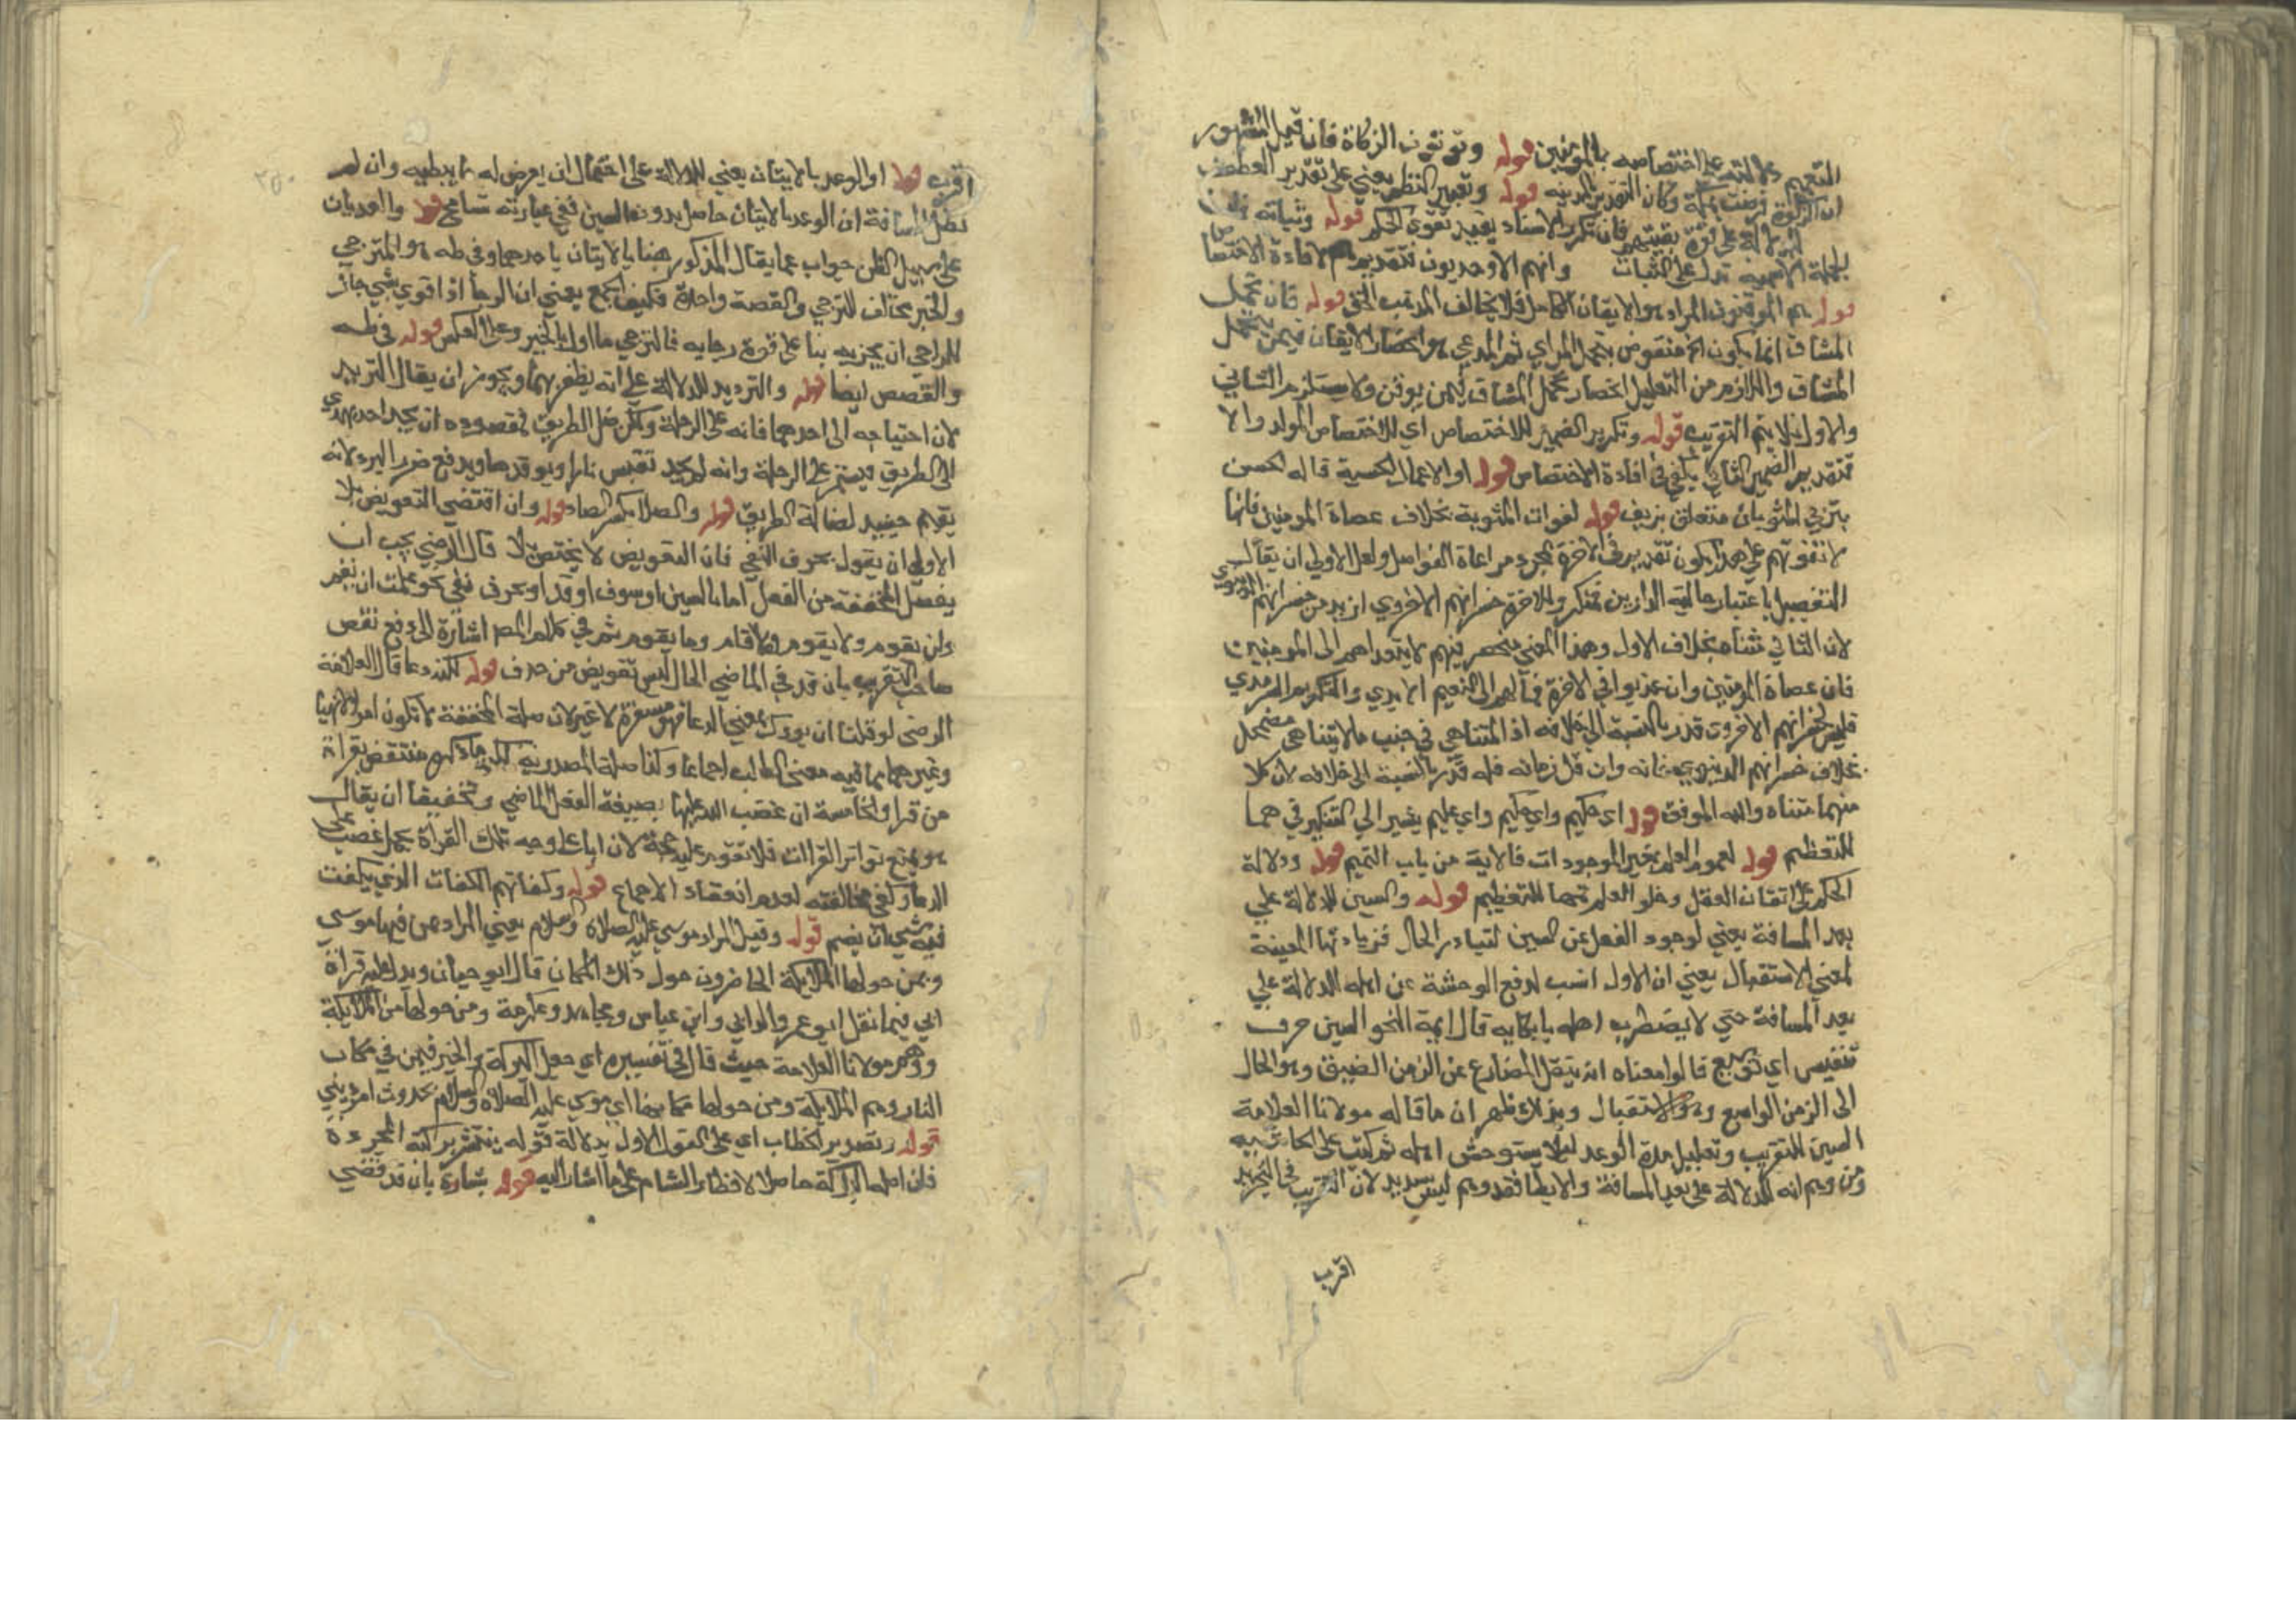 التعميم دلالته على اختصاصه بالمؤمنين قوله ويؤتون الزكاة فان قيل المشهور
ان الزكاة فرضت بمكة وكان التقدير بالمدينه قوله وتغيير النظم يعني على تقدير العطف
للدلالة على قوة يقينهم فان تكرر الاسناد يفيد تقوى الحكم قوله وثباته فان
الجملة الاسمية تدل على الثبات وانهم الاوحديون فتقديم هم لافادة الاختصاص
قوله هم الموقنون المراد هو الايقان الكامل فلا يخالف المذهب الحق قوله فان تحمل
المشاق انما يكون الخ منقوض بتحمل المراي ثم المدعي هو انحصار الايقان فيمن يتحمل
المشاق واللازم من التعليل انحصار تحمل المشاق فيمن يوقن ولا يستلزم الثاني
والاول فلا يتم التقريب قوله وتكرير الضمير للاختصاص اي للاختصاص المولد والا
فتقديم الضمير الثاني يكفي في افادة الاختصاص قوله او الاعمال الحسية قاله الحسن
بترتيب المثوبات متعلق بزين قوله لفوات المثوبة بخلاف عصاة المؤمنين فانها
لا تفوتهم على هذا يكون تقديم في الاخرة لمجرد مراعاة الفواصل ولعل الاولي ان يقال
التفصيل باعتبار حاليه الدارين فتذكر وبالاخرة خسرانهم الاخروي ازيد من خسرانهم الدنيوي
لان الثاني متناه بخلاف الاول وهذا المعني منحصر فيهم لا يتعداهم الى المؤمنين
فان عصاة المؤمنين وان عذبوا في الاخرة فمآلهم الى النعيم الابدي والتكريم السرمدي
فليس لخسرانهم الاخروي قدر بالنسبة الى خلافه اذ المتناهي في جنب ما لا يتناهى مضمحل
بخلاف خسرانهم الدنيوي فانه وان قل زمانه فله قدر بالنسبة الى خلافه لان كلا
منهما متناه والله الموفق قوله اي حكيم واي حكيم واي عليم يشير الي التنكير في هما
للتعظيم قوله لعموم العلم بغير الموجودات فالاية من باب التتميم قوله ودلالة
الحكم على اتقان الفعل وخلو العلم عنها للتعظيم قوله والسين للدلالة علي
بعد المسافة يعني لوجود الفعل عن السين لتبادر الحال فزيادتها المعينة
لمعني الاستقبال يعني ان الاول انسب لدفع الوحشة عن اهله الدلالة علي
بعد المسافة حتي لا يضطرب اهله بابطايه قال ايمة النحو السين حرف
تنفيس اي توسيع قالوا معناه انه ينقل المضارع عن الزمن الضيق وهو الحال
الى الزمن الواسع وهو الاستقبال وبذلك ظهر ان ما قاله مولانا العلامة
السين للتقريب وتعليل مدة الوعد ليلا يستوحش اهله ثم كتب على الحاشيه
ومن وهم انه للدلالة على بعد المسافة والابطا فقد وهم ليس بسديد لان التقريب في التجريد
اقرب
اقرب قوله او الوعد بالاتيان يعني للدلالة على احتمال ان يعرض له ما يبطيه وان لم
تطل المسافة ان الوعد بالاتيان حاصل بدون السين ففي عبارته تسامح قوله والعدتان
على سبيل الظن جواب عما يقال المذكور هنا بالاتيان باحدهما وفي طه هو المترجي
والخبر مخالف للترجي والقصة واحدة فكيف الجمع يعني ان الرجا اذا قوي شي جاز
للراجي ان يخبر به بنا على قوة رجايه فالترجي مااول بالخبر وعلى العكس قوله في طه
والقصص ايضا قوله والترديد للدلالة على انه يظفر بهما ويجوز ان يقال الترديد
لان احتياجه الى احدهما فانه على الرحلة وكان ضل الطريق فمقصوده ان يجد احد يهدي
الى الطريق فيستمر على الرحلة وانه لم يجد تقبس نارا ويوقدها ويدفع ضرر البرد لانه
يقيم حينيد لضالة الطريق قوله والصلا بكسر الصاد قوله وان اقتضي التعويض بلا
الاولي ان يقول بحرف النفي فان التعويض لا يختص بلا قال الرضي يجب ان
يفصل المخففة من الفعل اما بالسين او سوف او قد او بحرف نفي نحو علمت ان لم
ولن يقوم ولا يقوم وما قام وما يقوم ثم في كلام المص اشارة الى دفع نقض
صاحب التقريب بان قد في الماضي الحال ليس تعويض من حذف قوله لكنه دعا قال العلامة
الرضي لو قلنا ان بورك بمعني الدعا فهو مفسرة لا غير لان صلة المخففة لا تكون امرا ولا نهيا
وغيرهما مما فيه معنى الطلب اجماعا وكذا صلة المصدرية لكن ما ذكره منتقض بقراة
من قرا والخامسة ان غضب الله عليها بصيغة الفعل الماضي وتخفيف ان يقال
هو يمنع تواتر القراات فلا تقوم عليه حجة لان ابا علي وجه تلك القراة بحمل غضب على
الدعا وكفى مخالفته لعدم انعقاد الاجماع قوله وكفاتهم الكفات الذي يكفت
فيه شي اي يضم قوله وقيل المراد موسي عليه الصلاة والسلام يعني المراد بمن فيها موسي
وبمن حولها الملايكة الحاضرون حول ذلك المكان قال ابو حيان ويدل عليه قراة
ابي فيما نقل ابو عمرو الداني وابن عباس ومجاهد وعكرمة ومن حولها من الملايكة
ووهم مولانا العلامة حيث قال في تفسيره اي جعل البركة والخير فيمن في مكان
النار وهم الملايكة ومن حولها مكانها اي موسي عليه الصلاة والسلام بحدوث امر ديني
قوله وتصدير الخطاب اي على القول الاول بدلالة قوله ينتشر بركته الخ
فان اصل البركة حاصل لاقطار الشام على ما اشار اليه قوله بشارة بان قد قضي